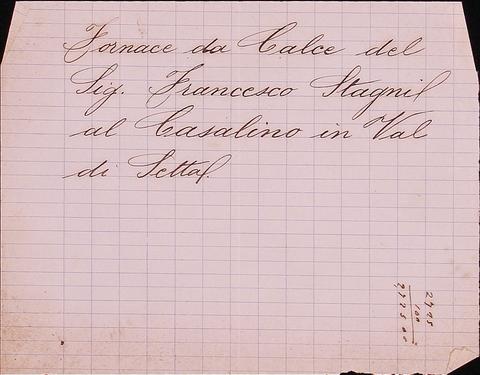 Fornace da Calce del
Sig. Francesco Stagni
al Casalino in Val
di Setta
2715
100